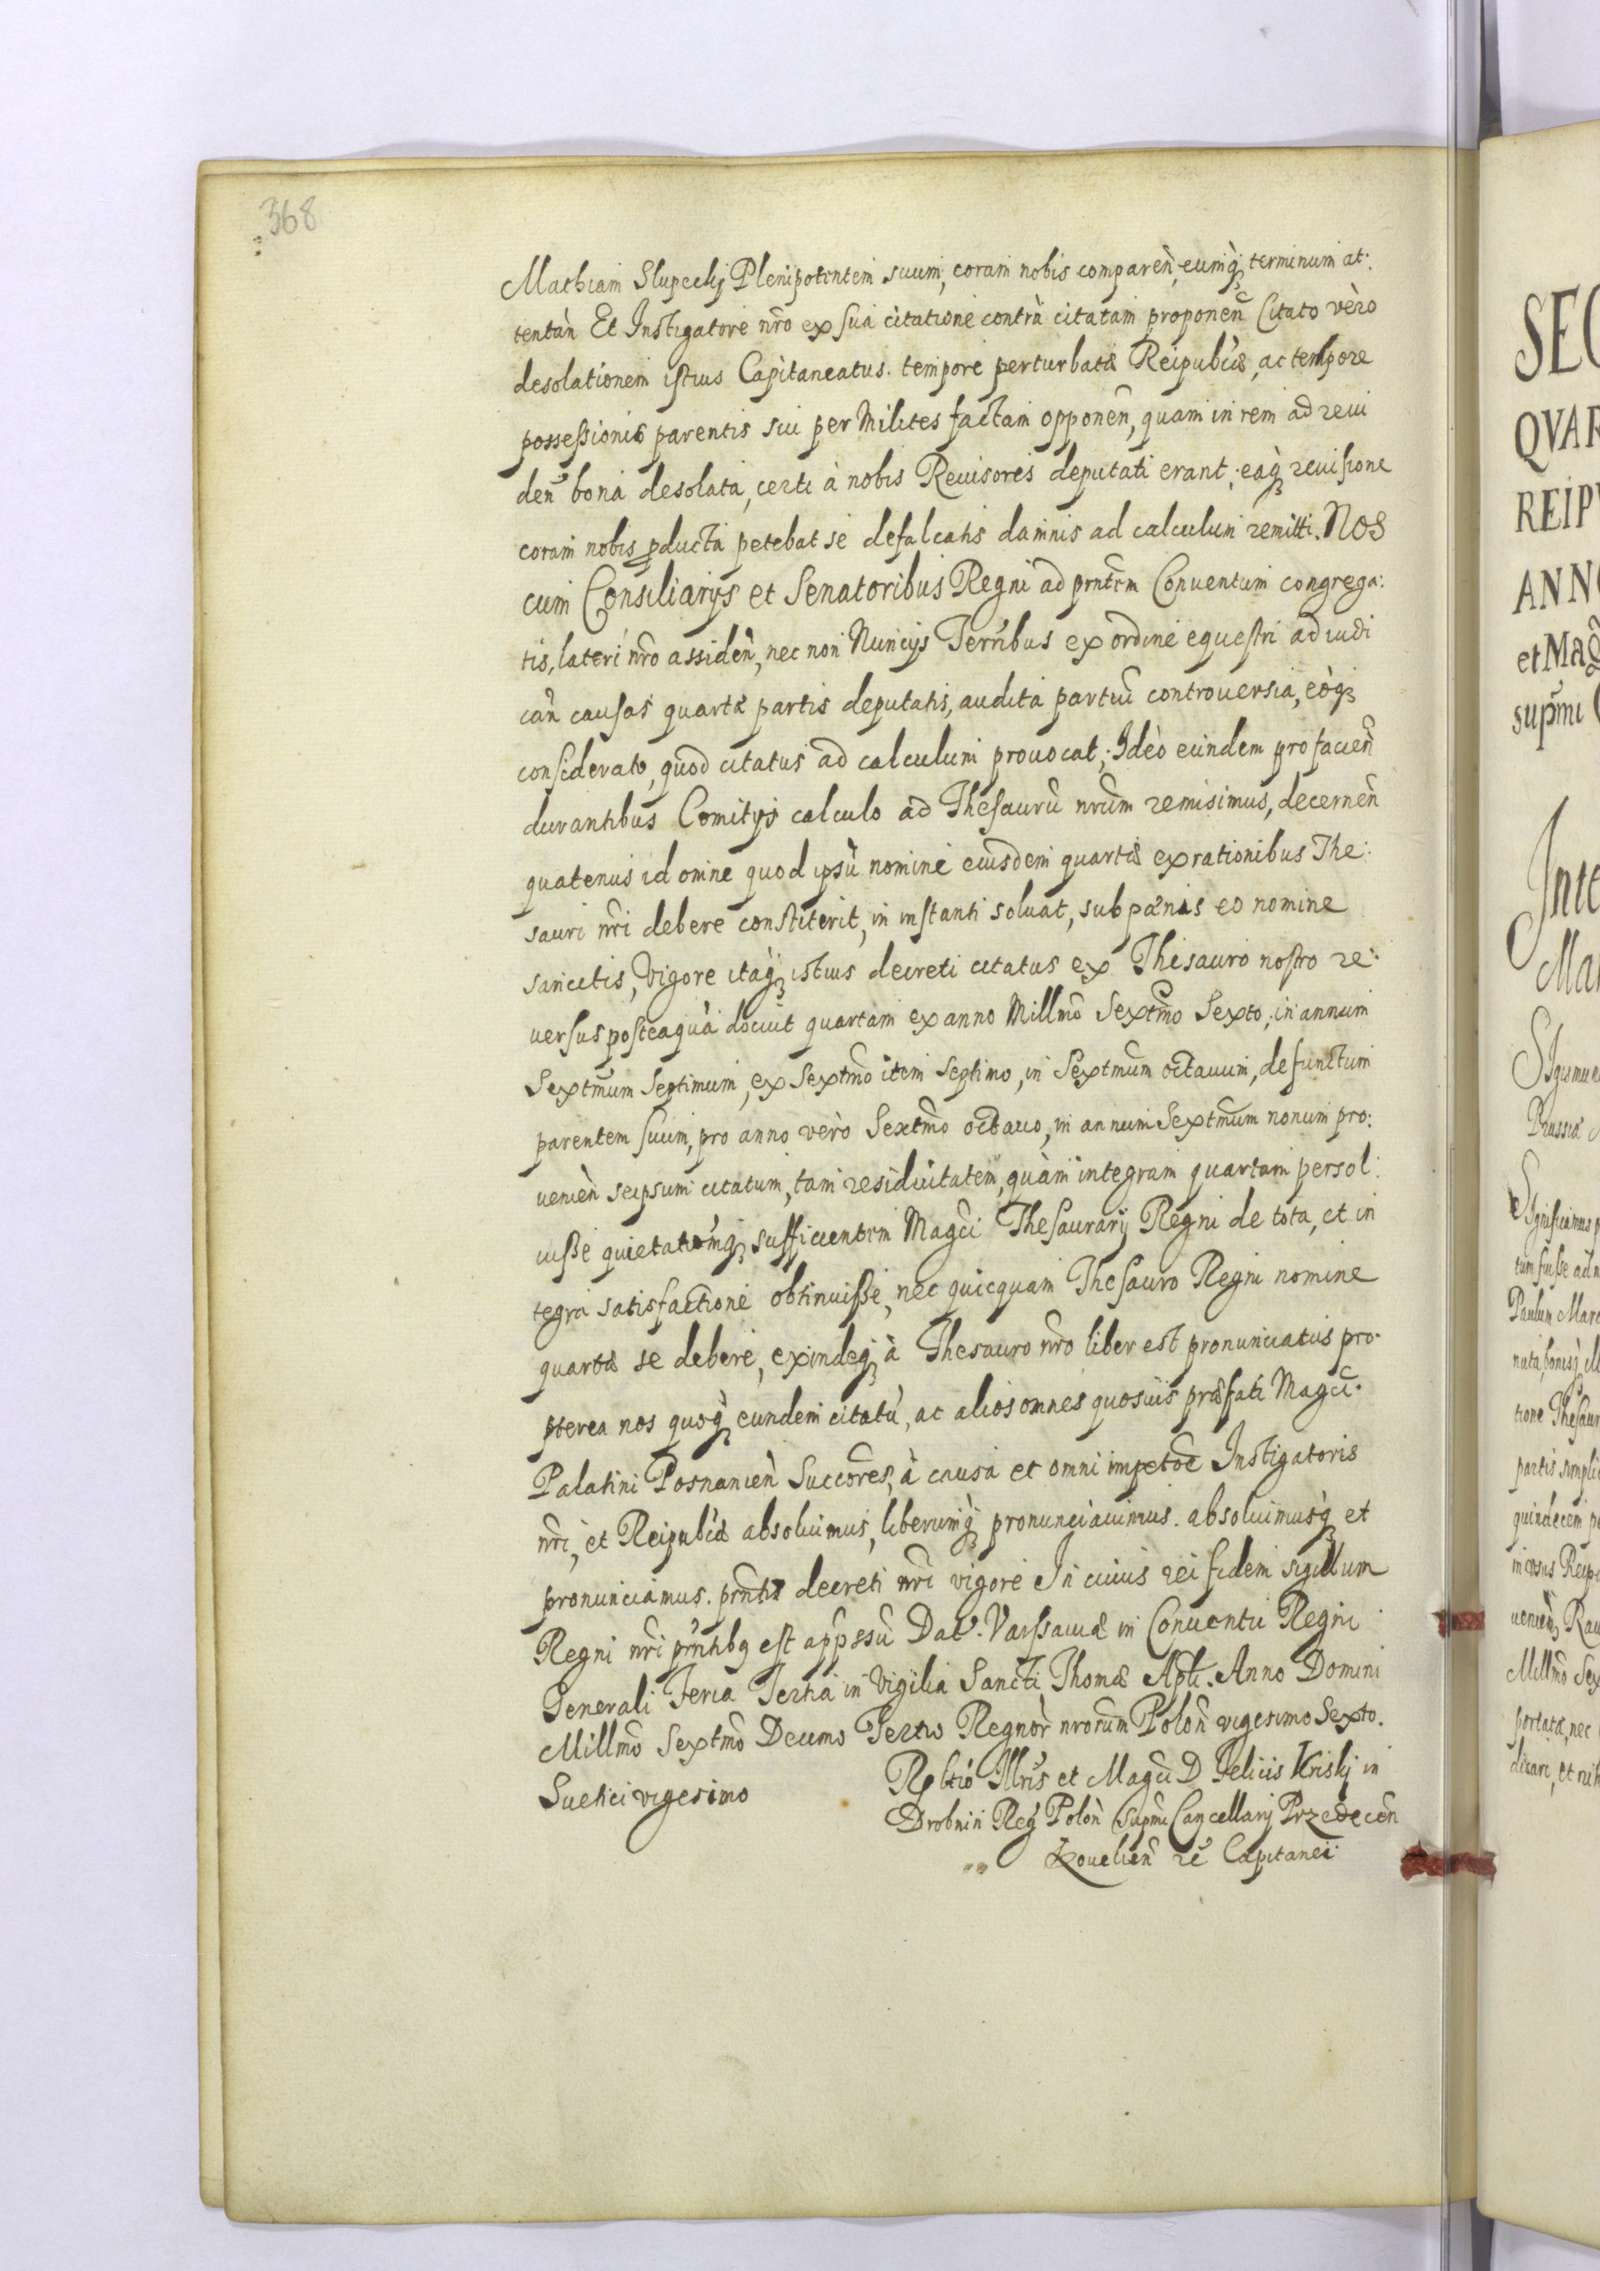 368
Mathiam Slupeckij Plenipotentem suum, coram nobis comparen̄, eumq₃ terminum at:
tentan̄ Et Instigatore nr̄o ex sua citatione contra citatam proponen̄ Citato vero
desolationem istius Capitaneatus. tempore perturbatæ Reipublicæ, ac tempore
possessionis parentis sui per Milites factam opponen̄, quam in rem ad reui
den̄ bona desolata, certi à nobis Reuisores deputati erant, eaq₃ reuisione
coram nobis producta petebat se defalcatis damnis ad calculum remitti. Nos
cum Consiliarijs et Senatoribus Regni ad prn̄tem Conuentum congrega:
tis, lateri nr̄o assiden̄, nec non Nuncijs Terribus ex ordine equestri ad iudi
can̄ causas quartæ partis deputatis, audita partiū controuersia, eoq₃
considerato, quod citatus ad calculum prouocat, Ideo eundem pro facien̄
durantibus Comitijs calculo ad Thesaurū nr̄um remisimus, decernen̄
quatenus id omne quod ipsū nomine eiusdem quartæ ex rationibus The:
sauri nr̄i debere constiterit, in instanti soluat, sub pænis eo nomine
sancitis, Vigore itaq₃ istius decreti citatus ex Thesauro nostro re:
uersus posteaquā docuit quartam ex anno Millm̄o Sextm̄o Sexto, in annum
Sextm̄um Septimum, ex Sextm̄o item Septimo, in Sextm̄um octauum, defunctum
parentem suum, pro anno vero Sextm̄o octauo, in annum Sextm̄um nonum pro:
uenien̄ seipsum citatum, tam residuitatem, quàm integram quartam persol:
uisse quietationemq₃ sufficientem Magci Thesaurarij Regni de tota, et in
tegra satisfactione obtinuisse, nec quicquam Thesauro Regni nomine
quartæ se debere, exindeq₃ à Thesauro nr̄o liber est pronunciatus pro:
pterea nos quoq₃ eundem citatū, ac alios omnes quosuis præfati Magci
Palatini Posnanien̄ Succōres, à causa et omni impetōe Instigatoris
nr̄i, et Reipublicæ absoluimus, liberumq₃ pronunciauimus. absoluimusq₃ et
pronunciamus. prn̄tis decreti nr̄i vigore In cuius rei fidem sigillum
Regni nr̄i prn̄tibq est appssū Dat. Varssauiæ in Conuentu Regni
Generali Feria Tertia in Vigilia Sancti Thomæ Apli. Anno Domini
Millm̄o Sextm̄o Decimo Tertio Regnor̄ nrorum Polon̄ vigesimo Sexto.
Suetici vigesimo
Rēltio Illris et Magci D Felicis Kriskj in
Drobnin Reg Polon̄ Supmi Cancellarij Przedecen̄
Kouelien̄ rē Capitanei